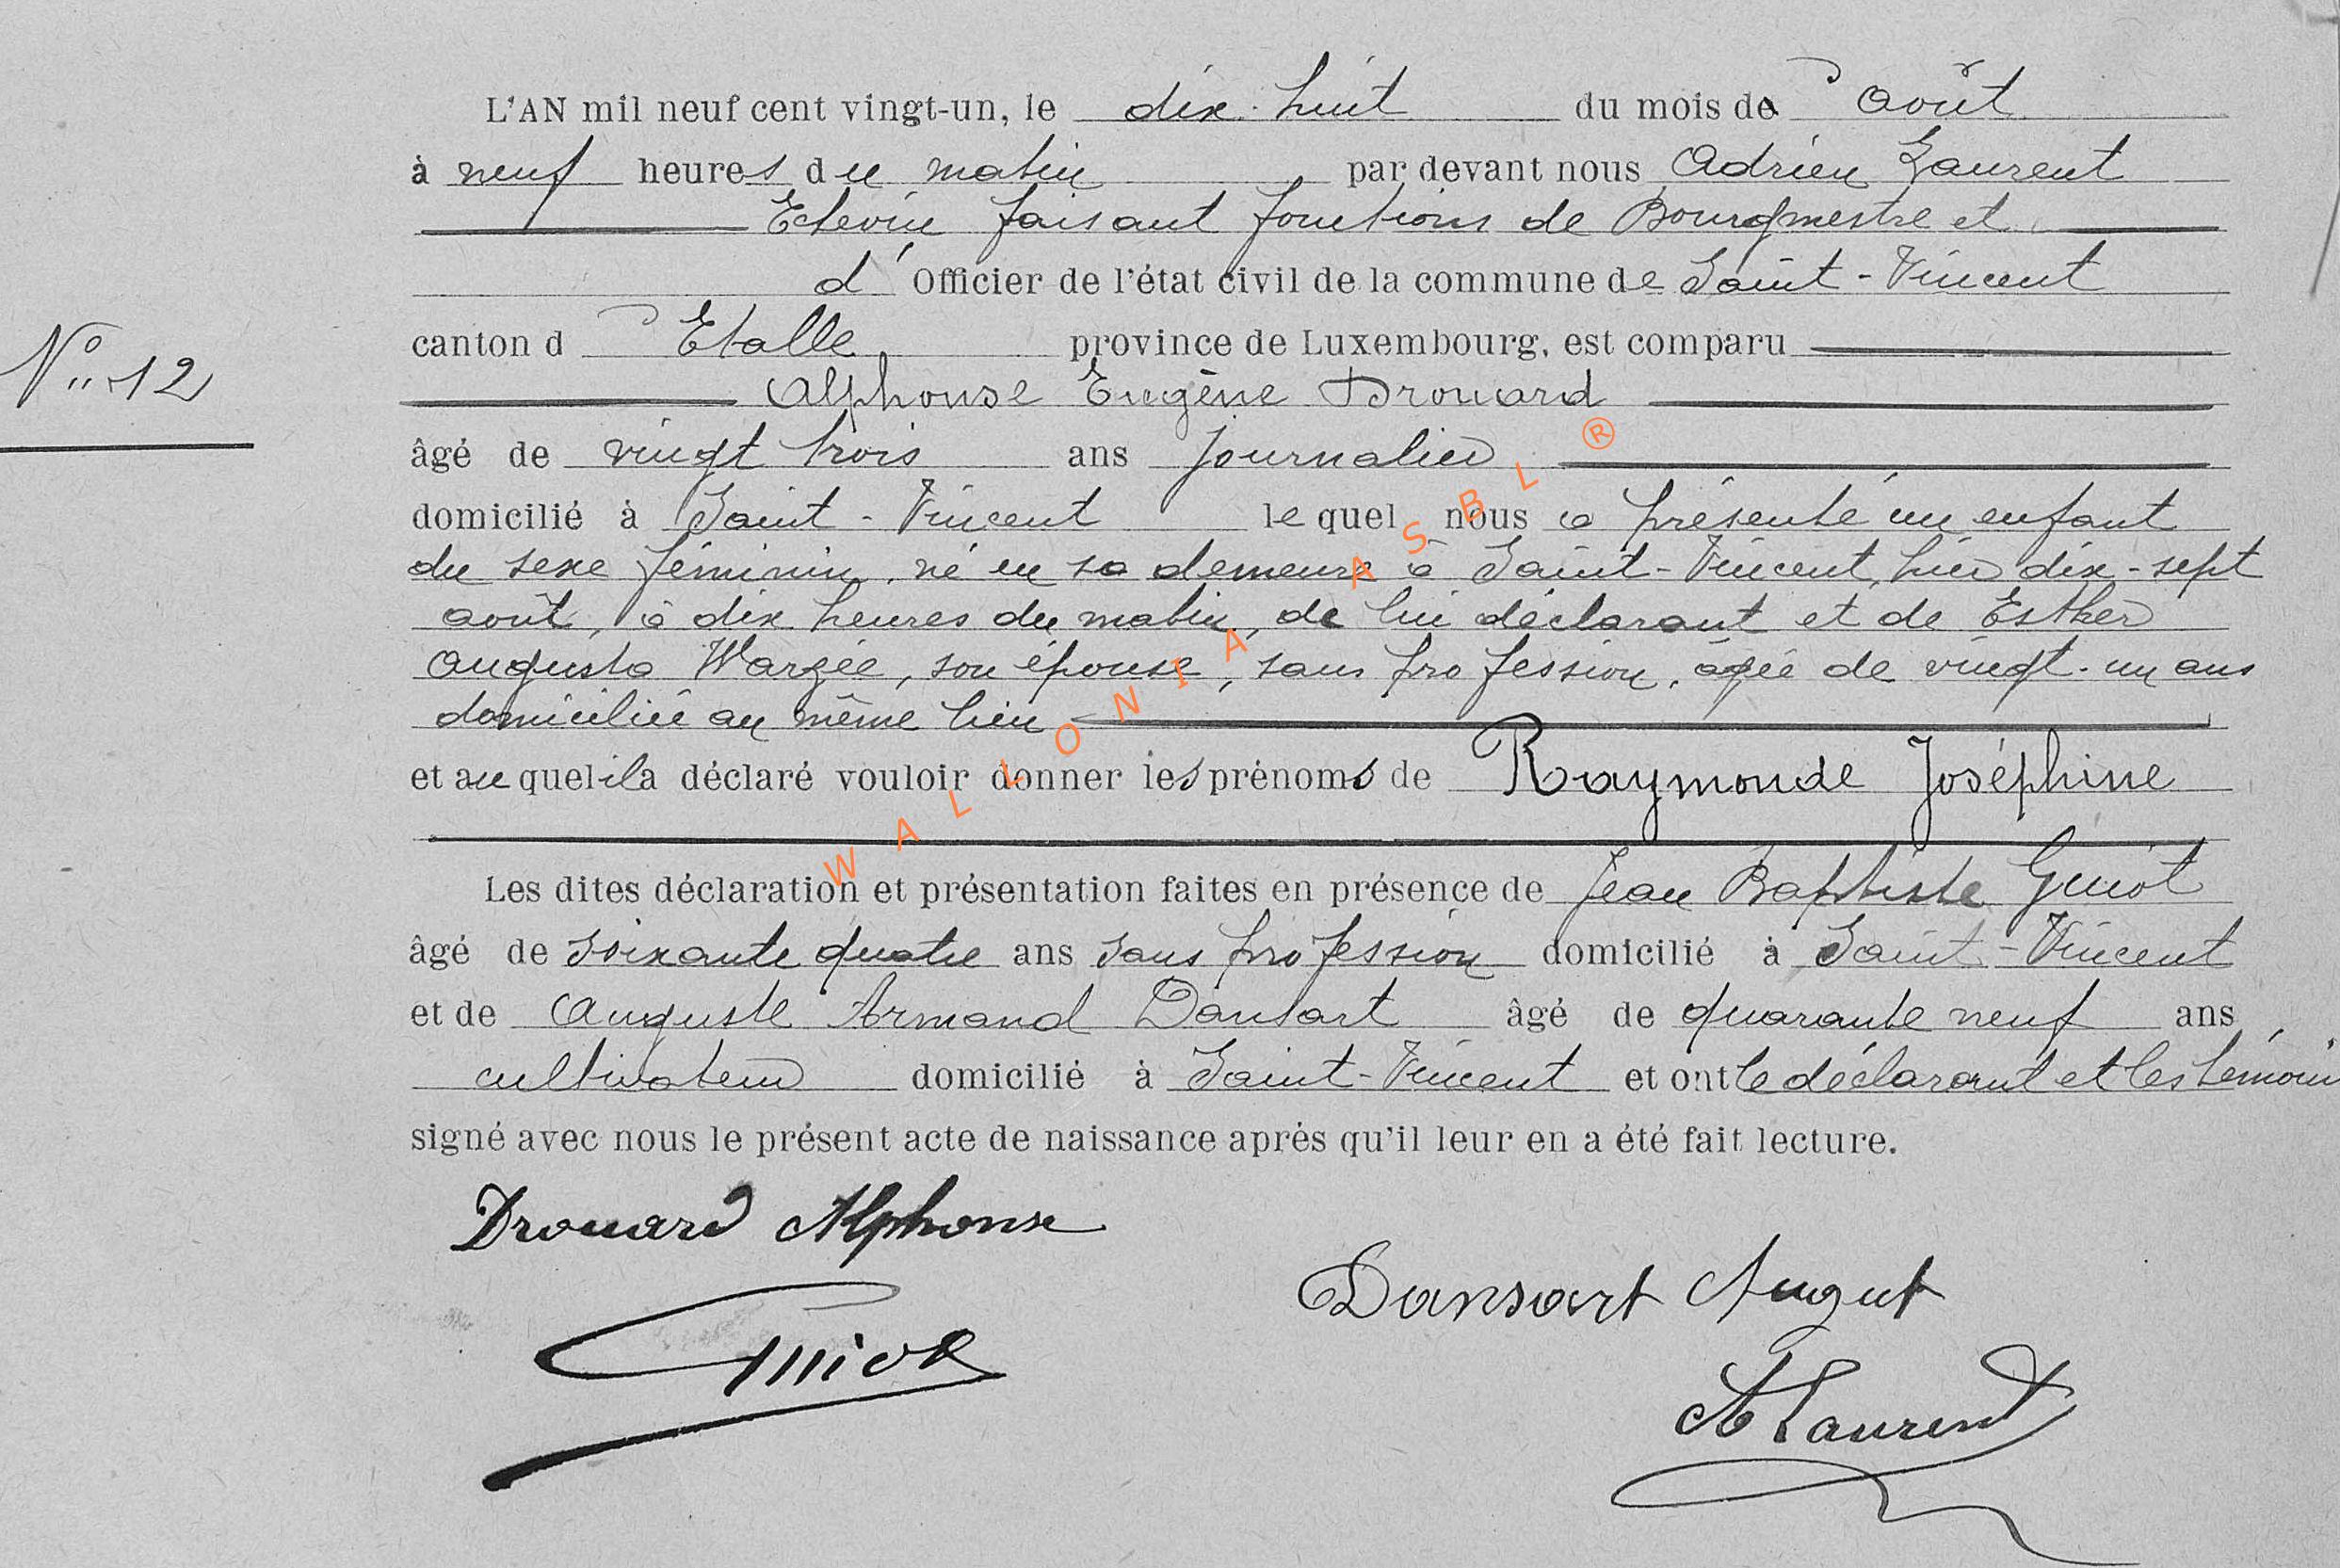 L'AN mil neuf cent vingt-un, le dix-huit du mois de août
à neuf heures du matin par devant nous Adrien Laurent
Echevin faisant fonctions de Bourgmestre et
d' Officier de l'état civil de la commune de Saint-Vincent
N° 12
canton d Etalle province de Luxembourg, est comparu
Alphonse Eugène Drouard
âgé de vingt trois ans journalier
domicilié à Saint-Vincent lequel nous a présenté un enfant
du sexe féminin, né en sa demeure à Saint-Vincent, hier dix-sept
août, à dix heures du matin, de lui déclarant et de Esther
Augusta Wargée, son épouse, sans profession, âgée de vingt-un ans
domiciliée au même lieu
et auquel il a déclaré vouloir donner les prénoms de Raymonde Joséphine
Les dites déclaration et présentation faites en présence de Jean Baptiste Guiot
âgé de soixante quatre ans sans profession domicilié à Saint-Vincent
et de Auguste Armand Dansart âgé de quarante neuf ans,
cultivateur domicilié à Saint-Vincent et ont le déclarant et les témoins
signé avec nous le présent acte de naissance après qu'il leur en a été fait lecture.
Drouard Alphonse
Dansart August
Guiot
A Laurent
WALLONIA ASBL ®